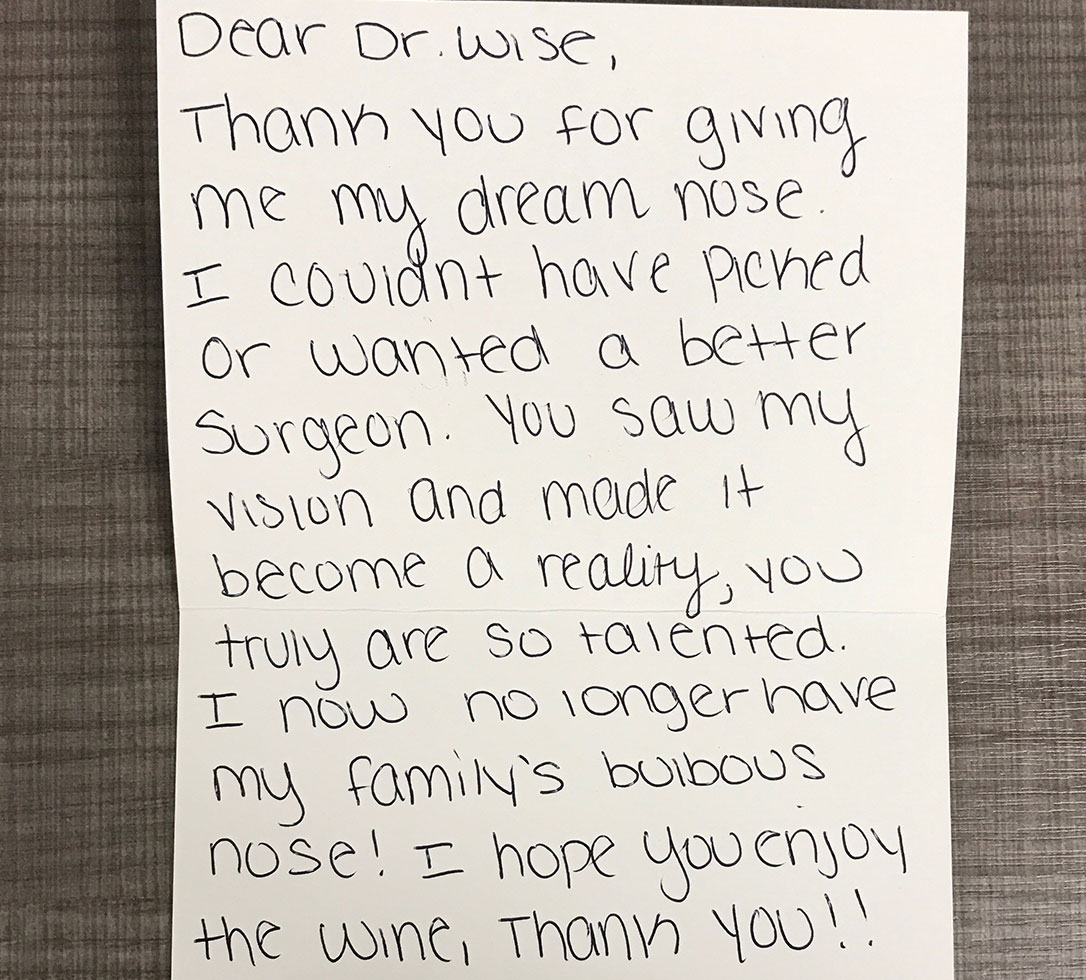 Dear Dr. Wise,
Thank you for giving
me my dream nose.
I couldnt have picked
or wanted a better
surgeon. You saw my
vision and made it
become a reality, you
truly are so talented.
I now no longer have
my family's bulbous
nose! I hope you enjoy
the wine, Thank you!!